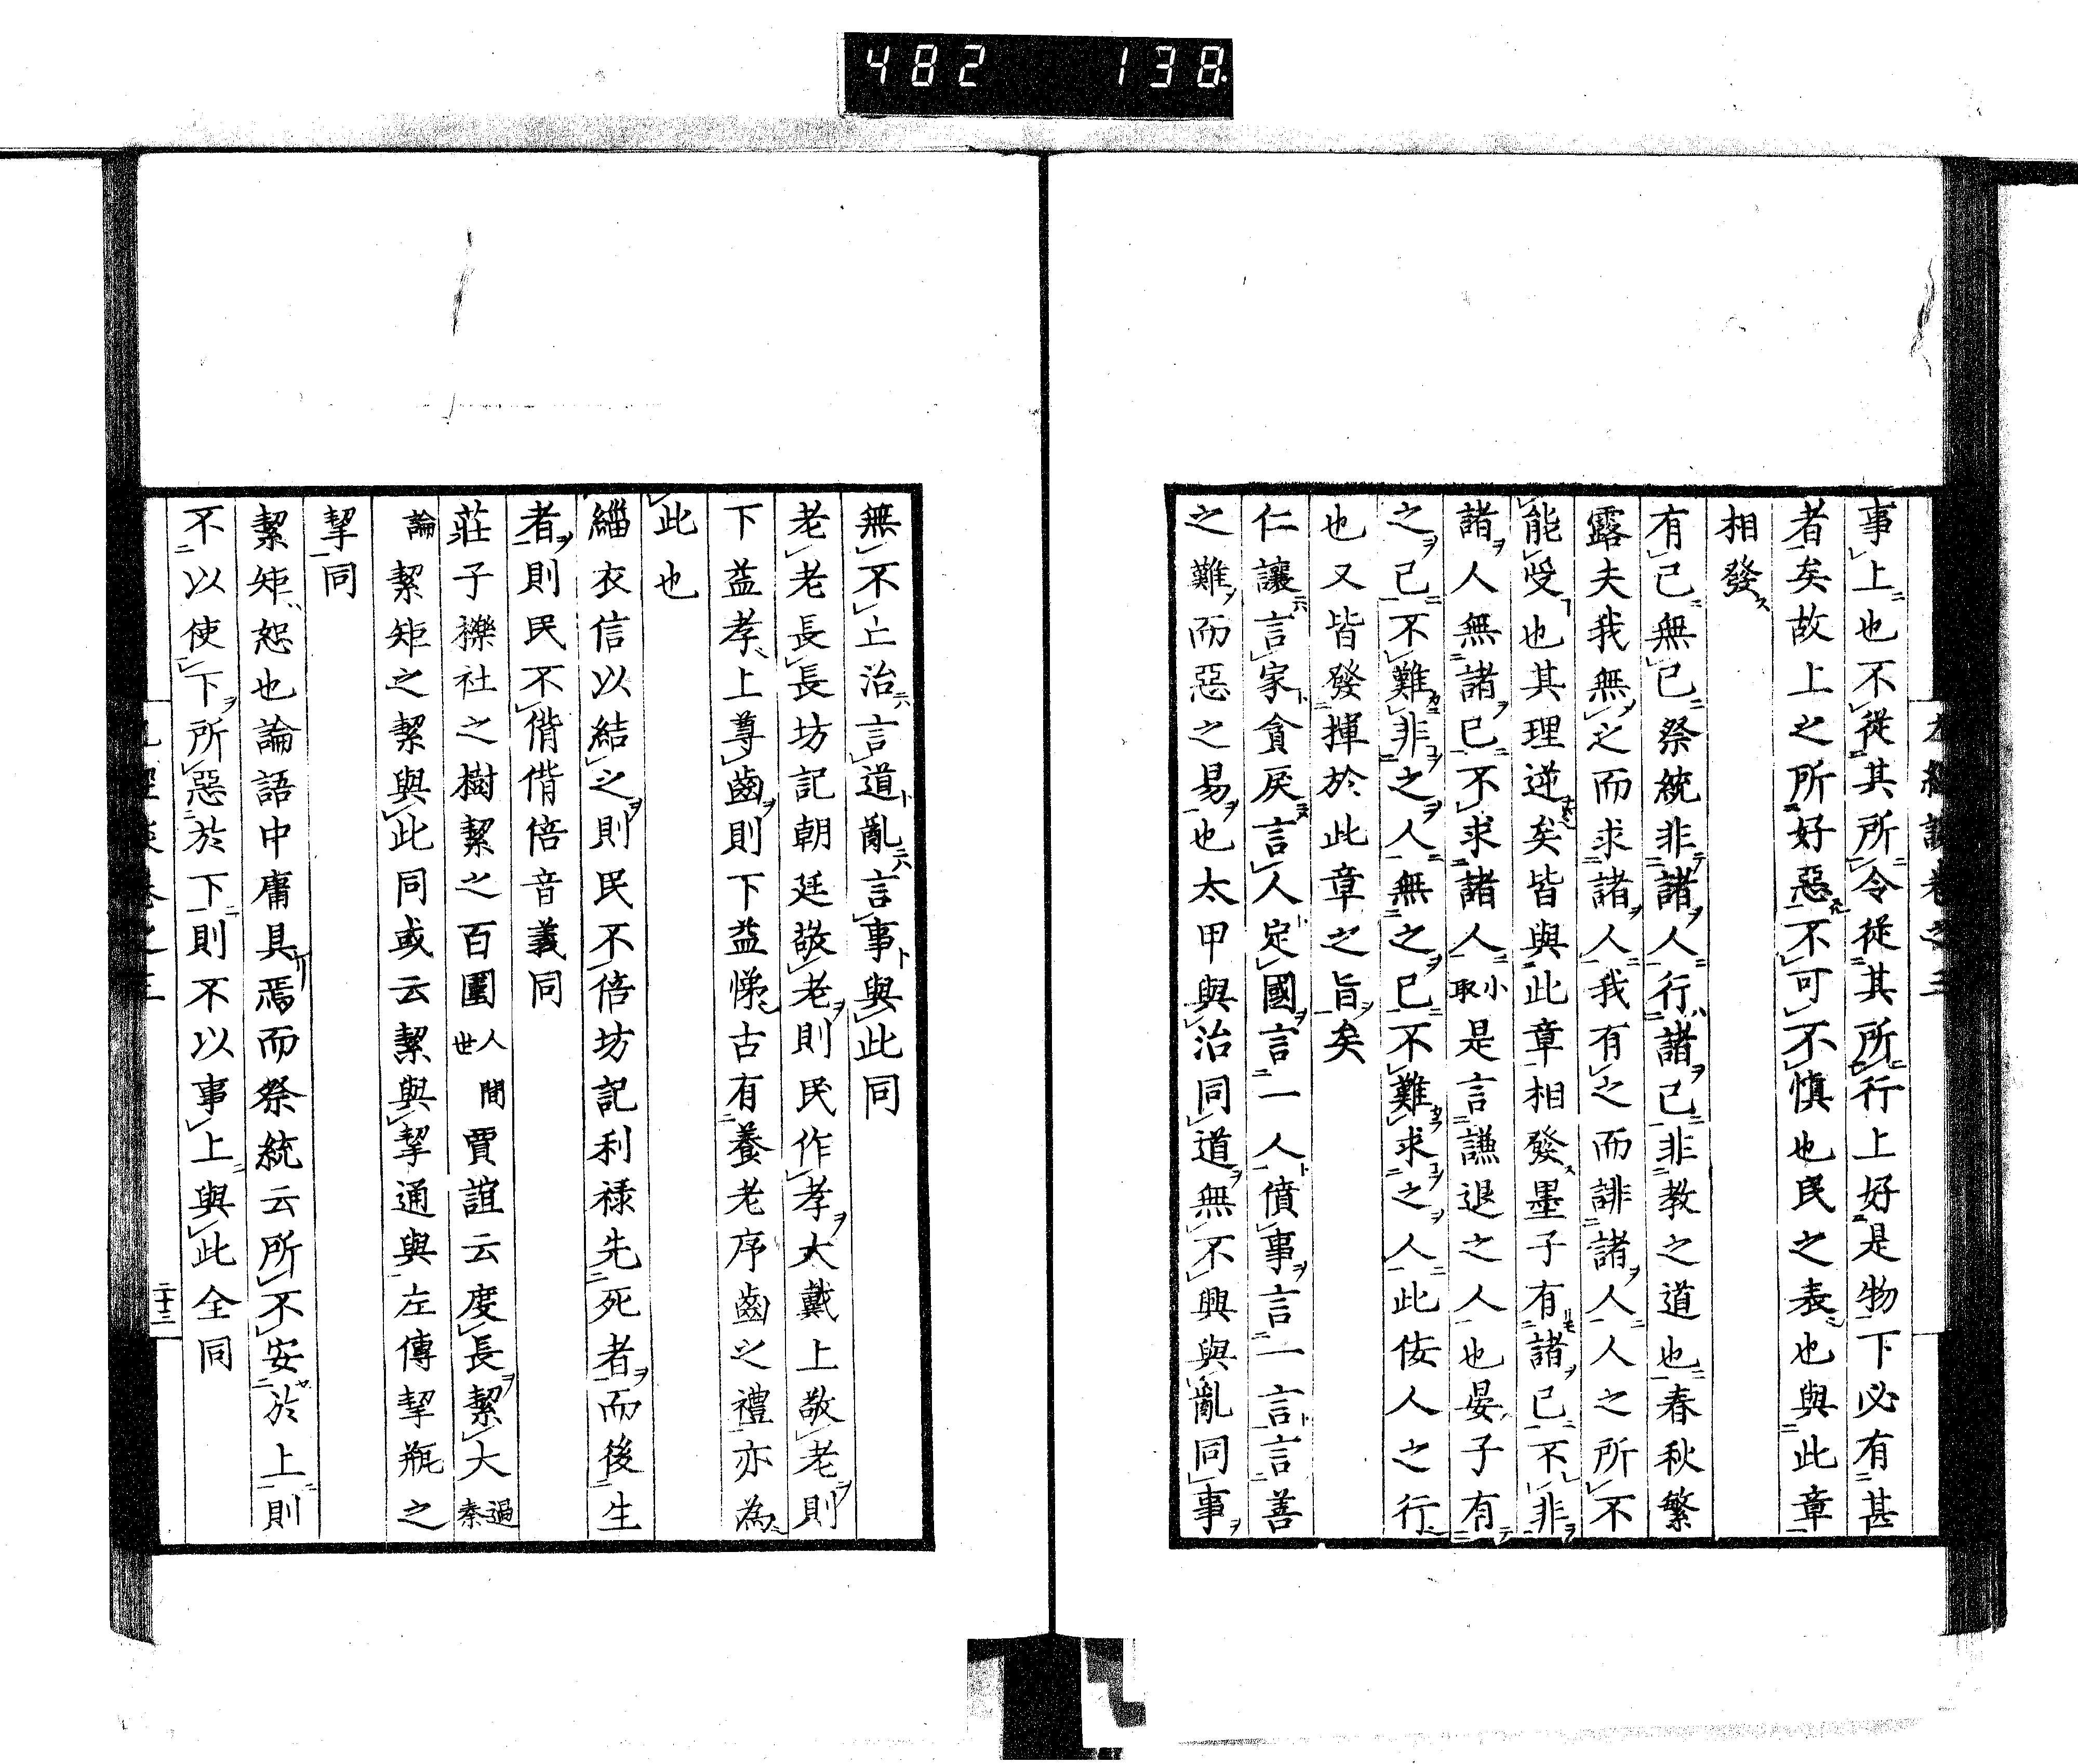 482 138
事上也不從其所令從其所行上好是物下必有甚
者矣故上之所好惡不可不慎也民之表也與此章
相發
有己無己祭統非諸人行諸己非教之道也春秋繁
露夫我無之而求諸人我有之而誹諸人人之所不
能受也其理逆矣皆與此章相發墨子有諸己不非
諸人無諸己不求諸人小取是言謙退之人也晏子有
之己不難非之人無之己不難求之人此佞人之行
也又皆發揮於此章之旨矣
仁讓言家貪戾言人定國言一人僨事言一言言善
之難而惡之易也太甲與治同道無不興與亂同事
無不上治言道亂言事與此同
老老長長坊記朝廷敬老則民作孝大戴上敬老則
下益孝上尊齒則下益悌古有養老序齒之禮亦為
此也
緇衣信以結之則民不倍坊記利祿先死者而後生
者則民不偝偝倍音義同
莊子櫟社之樹絜之百圍人間世賈誼云度長絜大過秦
論絜矩之絜與此同或云絜與挈通與左傳挈瓶之
挈同
絜矩恕也論語中庸具焉而祭統云所不安於上則
不以使下所惡於下則不以事上與此全同
二十三